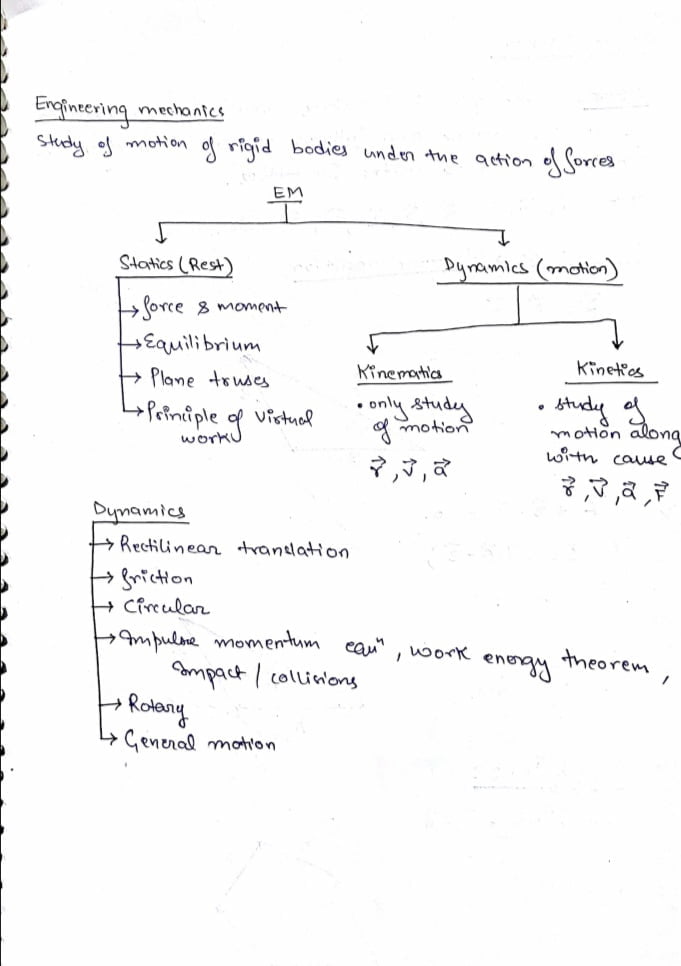 Engineering mechanics
Study of motion of rigid bodies under the action of forces
EM
Statics (Rest)
Dynamics (motion)
force & moment
Equilibrium
Plane truses
Principle of virtual
work
Kinematics
• only study
of motion
r⃗, v⃗, a⃗
Kinetics
• study of
motion along
with cause
r⃗, v⃗, a⃗, F⃗
Dynamics
Rectilinear translation
friction
Circular
Impulse momentum eqnⁿ, work energy theorem,
Impact / collisions
Rotary
General motion